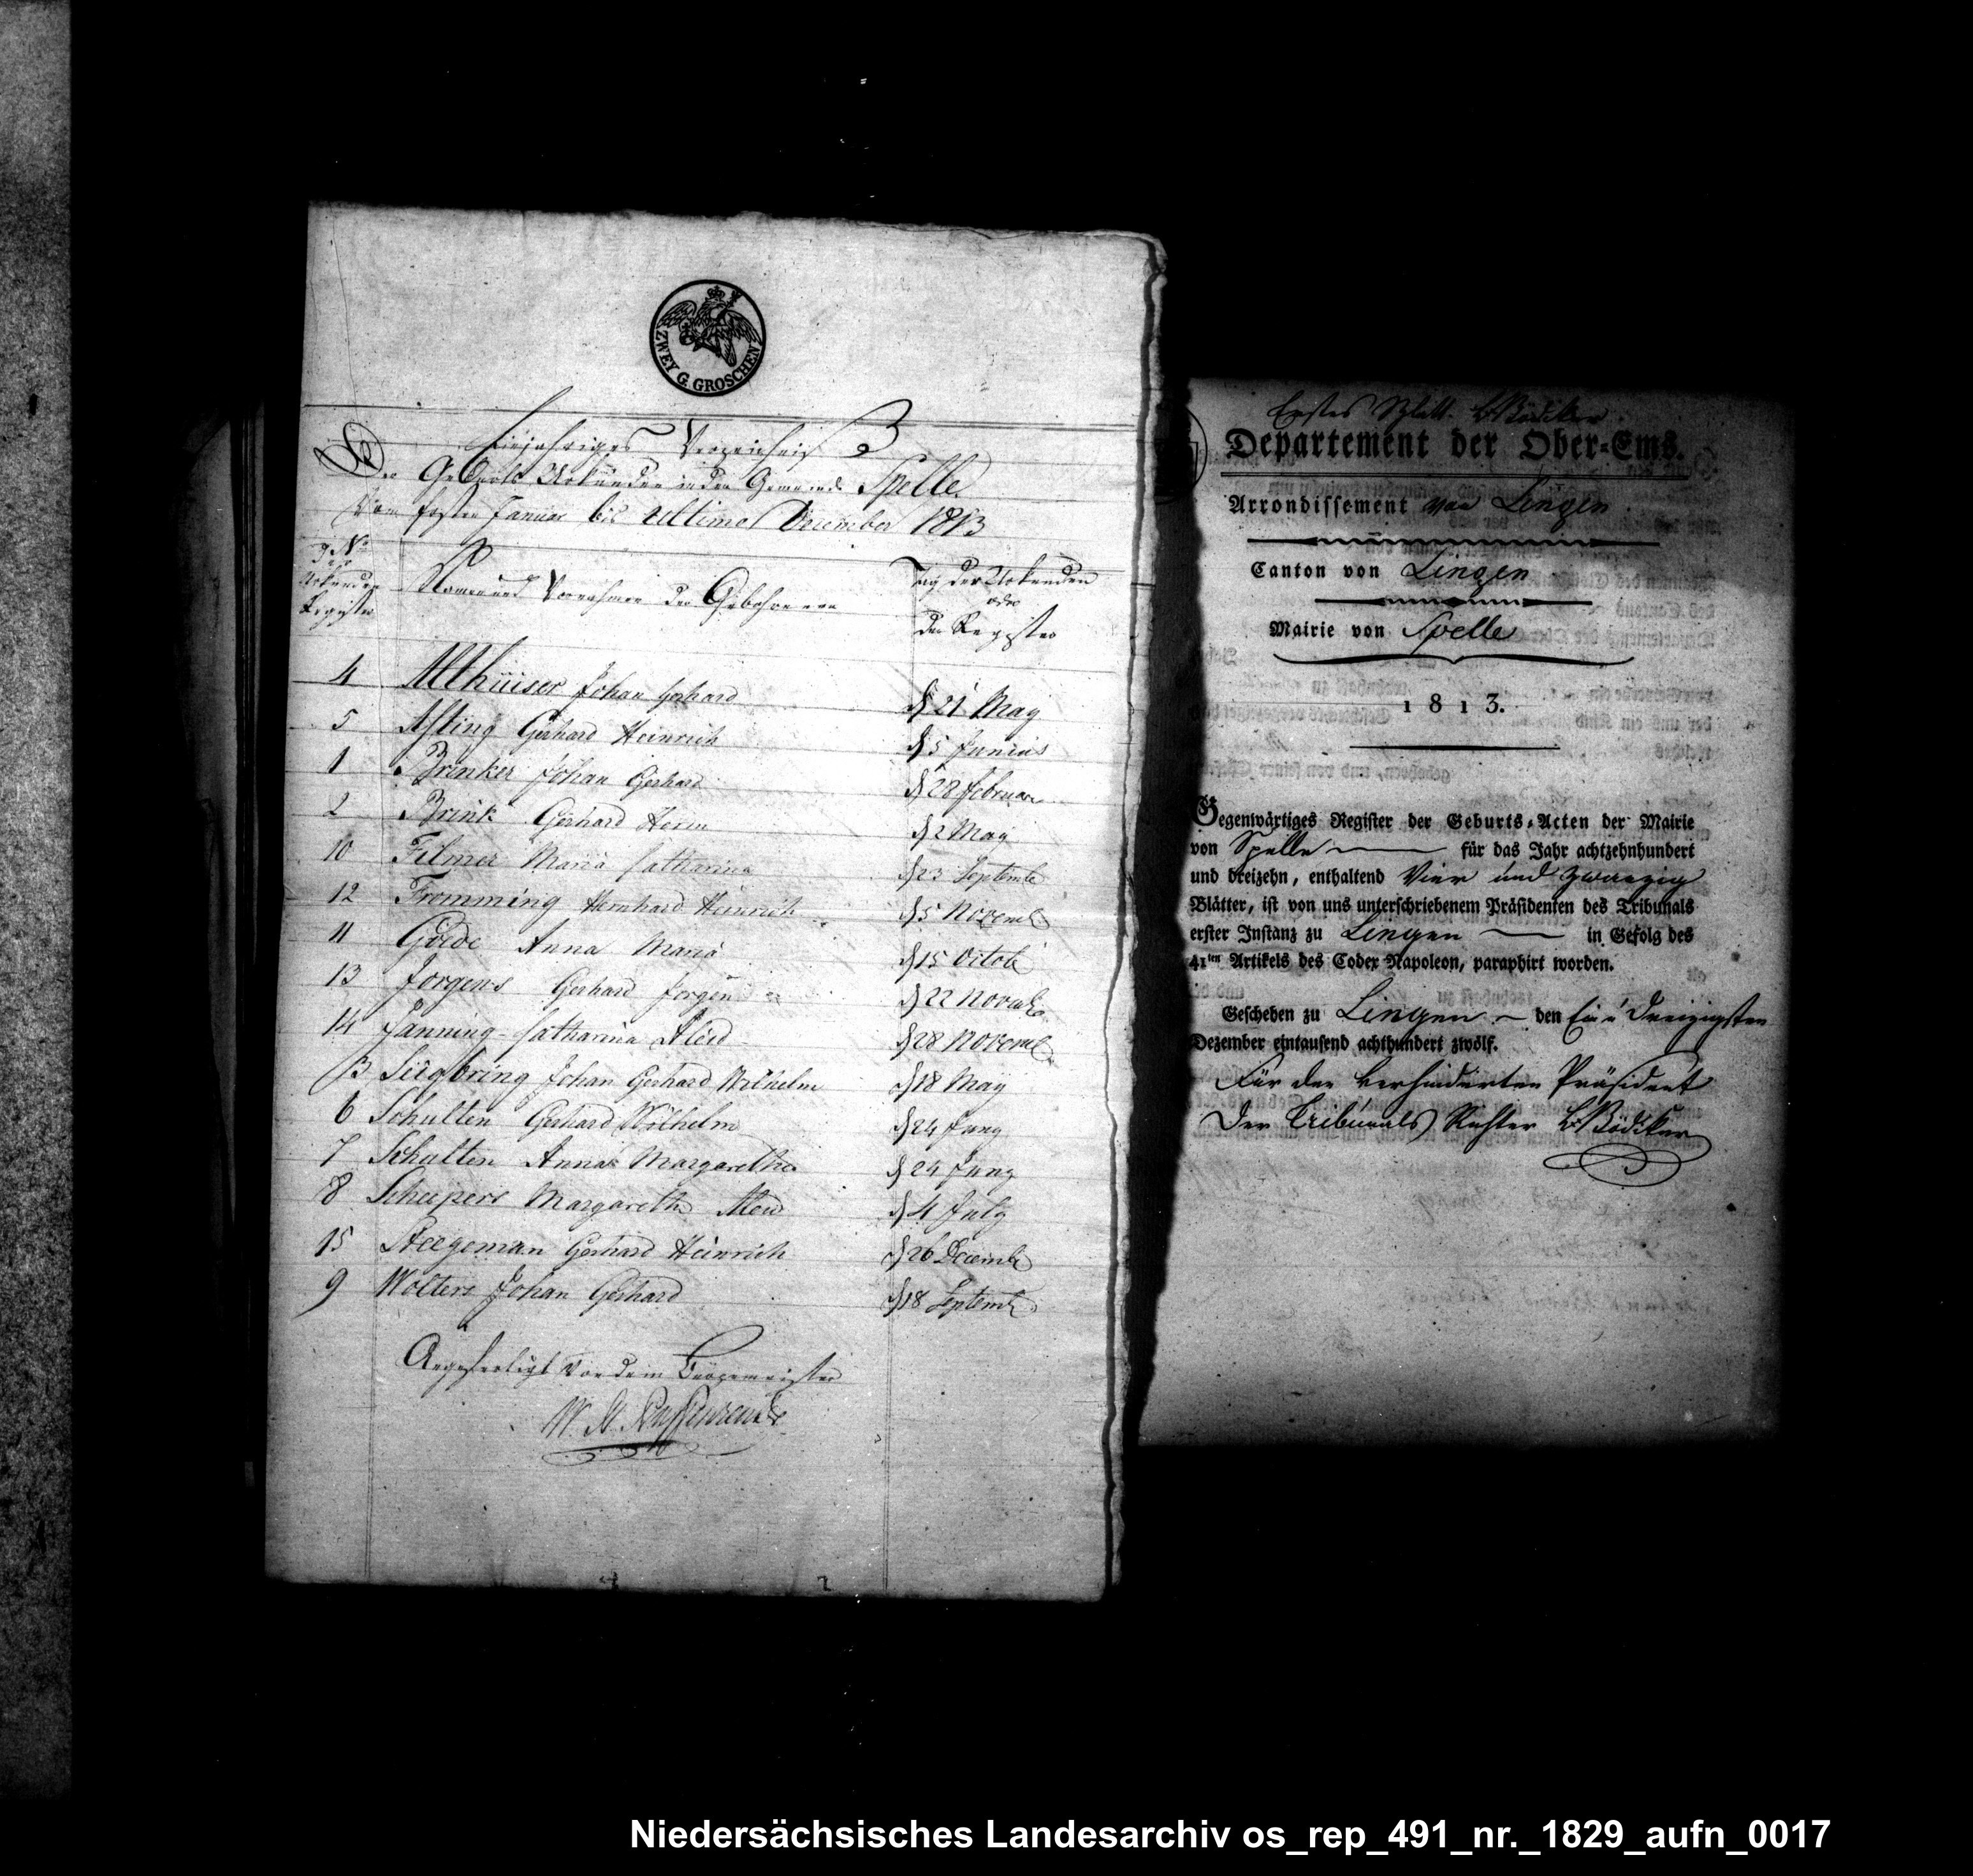 ZWEY G. GROSCHEN
Einjähriges Verzeichniß
Der Geburts Urkunden in der Gemeinde Spelle
Vom ersten Januar bis Ultimo December 1813
No
der
Urkunden
Register
Namen und Vornahmen der Gebohrenen
Tag der Urkunden
oder
der Register
4 Althüiser Johan Gerhard d 21 May
5 Asting Gerhard Heinrich d 5 Junius
1 Brinker Johan Gerhard d 28 Februar
2 Brink Gerhard Herm d 2 May
10 Filmer Maria Catharina d 23 Septemb
12 Fromming Hernhard Heinrich d 5 Novemb
11 Goede Anna Maria d 15 Octob
13 Jorgens Gerhard Jorgen d 22 Novemb
14 Janning Catharina Aleid d 28 Novemb
3 Johan Gerhard Wilhelm d 18 May
6 Schulten Gerhard Wilhelm d 24 Juny
7 Schulten Anna Margaretha d 24 Juny
8 Schepers Margaretha Aleid d 4 July
15 Steegeman Gerhard Heinrich d 26 Decemb
9 Wolters Johan Gerhard d 18 Septemb
Angefertigt von dem Bürgermeister
Erstes Blatt. Bödiker
Departement der Ober-Ems.
Arrondissement von Lingen
Canton von Lingen
Mairie von Spelle
1813.
Gegenwärtiges Register der Geburts-Acten der Mairie
von Spelle für das Jahr achtzehnhundert
und dreizehn, enthaltend Vier und zwanzig
Blätter, ist von uns unterschriebenem Präsidenten des Tribunals
erster Instanz zu Lingen in Gefolg des
41ten Artikels des Codex Napoleon, paraphirt worden.
Geschehen zu Lingen den Ein u Dreizigsten
Dezember eintausend achthundert zwölf.
Für den verhinderten Präsident
Der Tribunals Richter Bödiker
Niedersächsisches Landesarchiv os_rep_491_nr._1829_aufn_0017